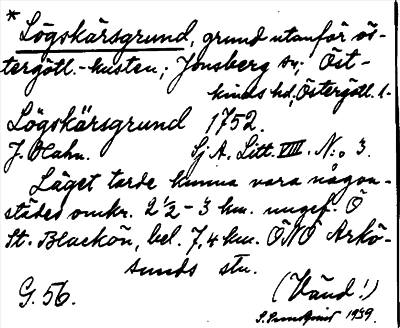 * Lögskärsgrund, grund utanför ös-
tergötl.-kusten; Jonsberg sn; Öst-
kinds hd, Östergötl. l.
Lögskärsgrund 1752.
J. Hahn. Sj A. Litt. VIII. N:o 3.
Läget torde kunna vara någon-
städes omkr. 2 1/2 - 3 km. ungef. Ö
St. Blackön, bel. 7,4 km. ÖNÖ Arkö-
sunds stn.
G. 56. (Vänd!)
1939.